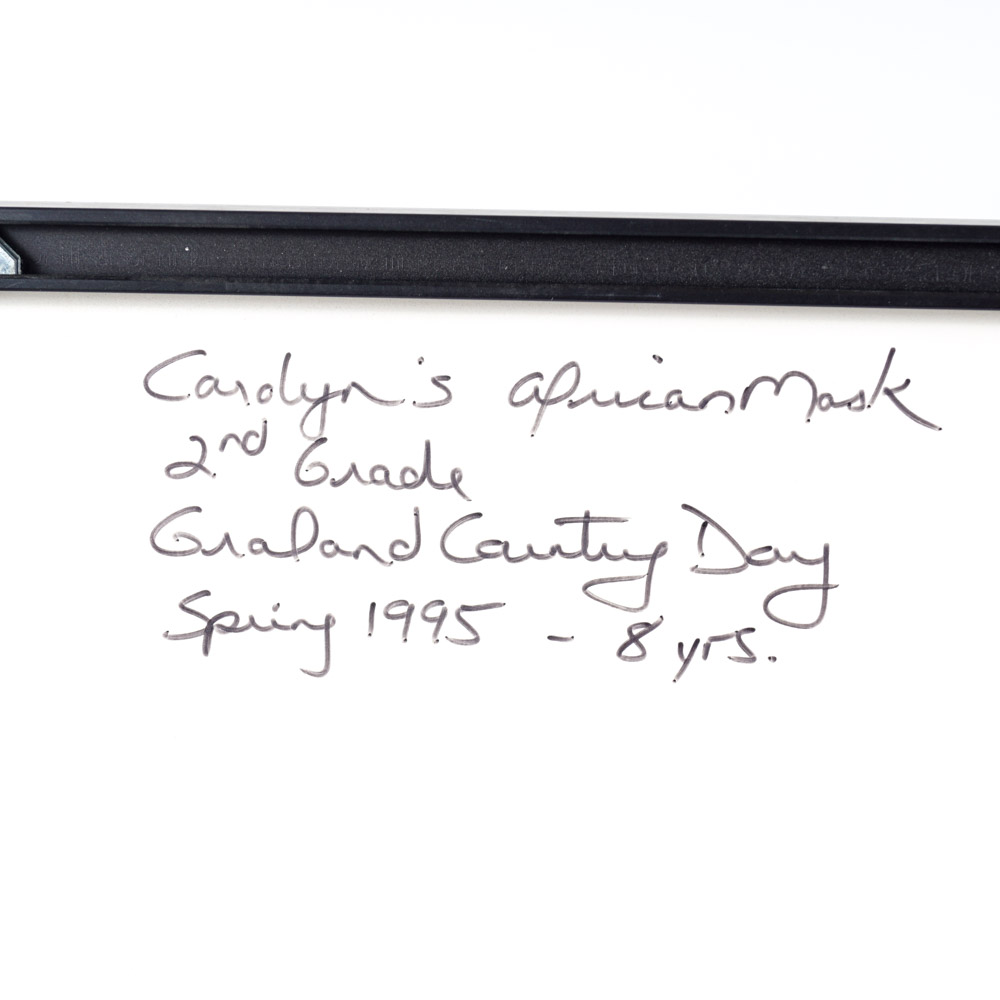 Carolyn's African Mask
2nd Grade
Graland Country Day
Spring 1995 - 8 yrs.